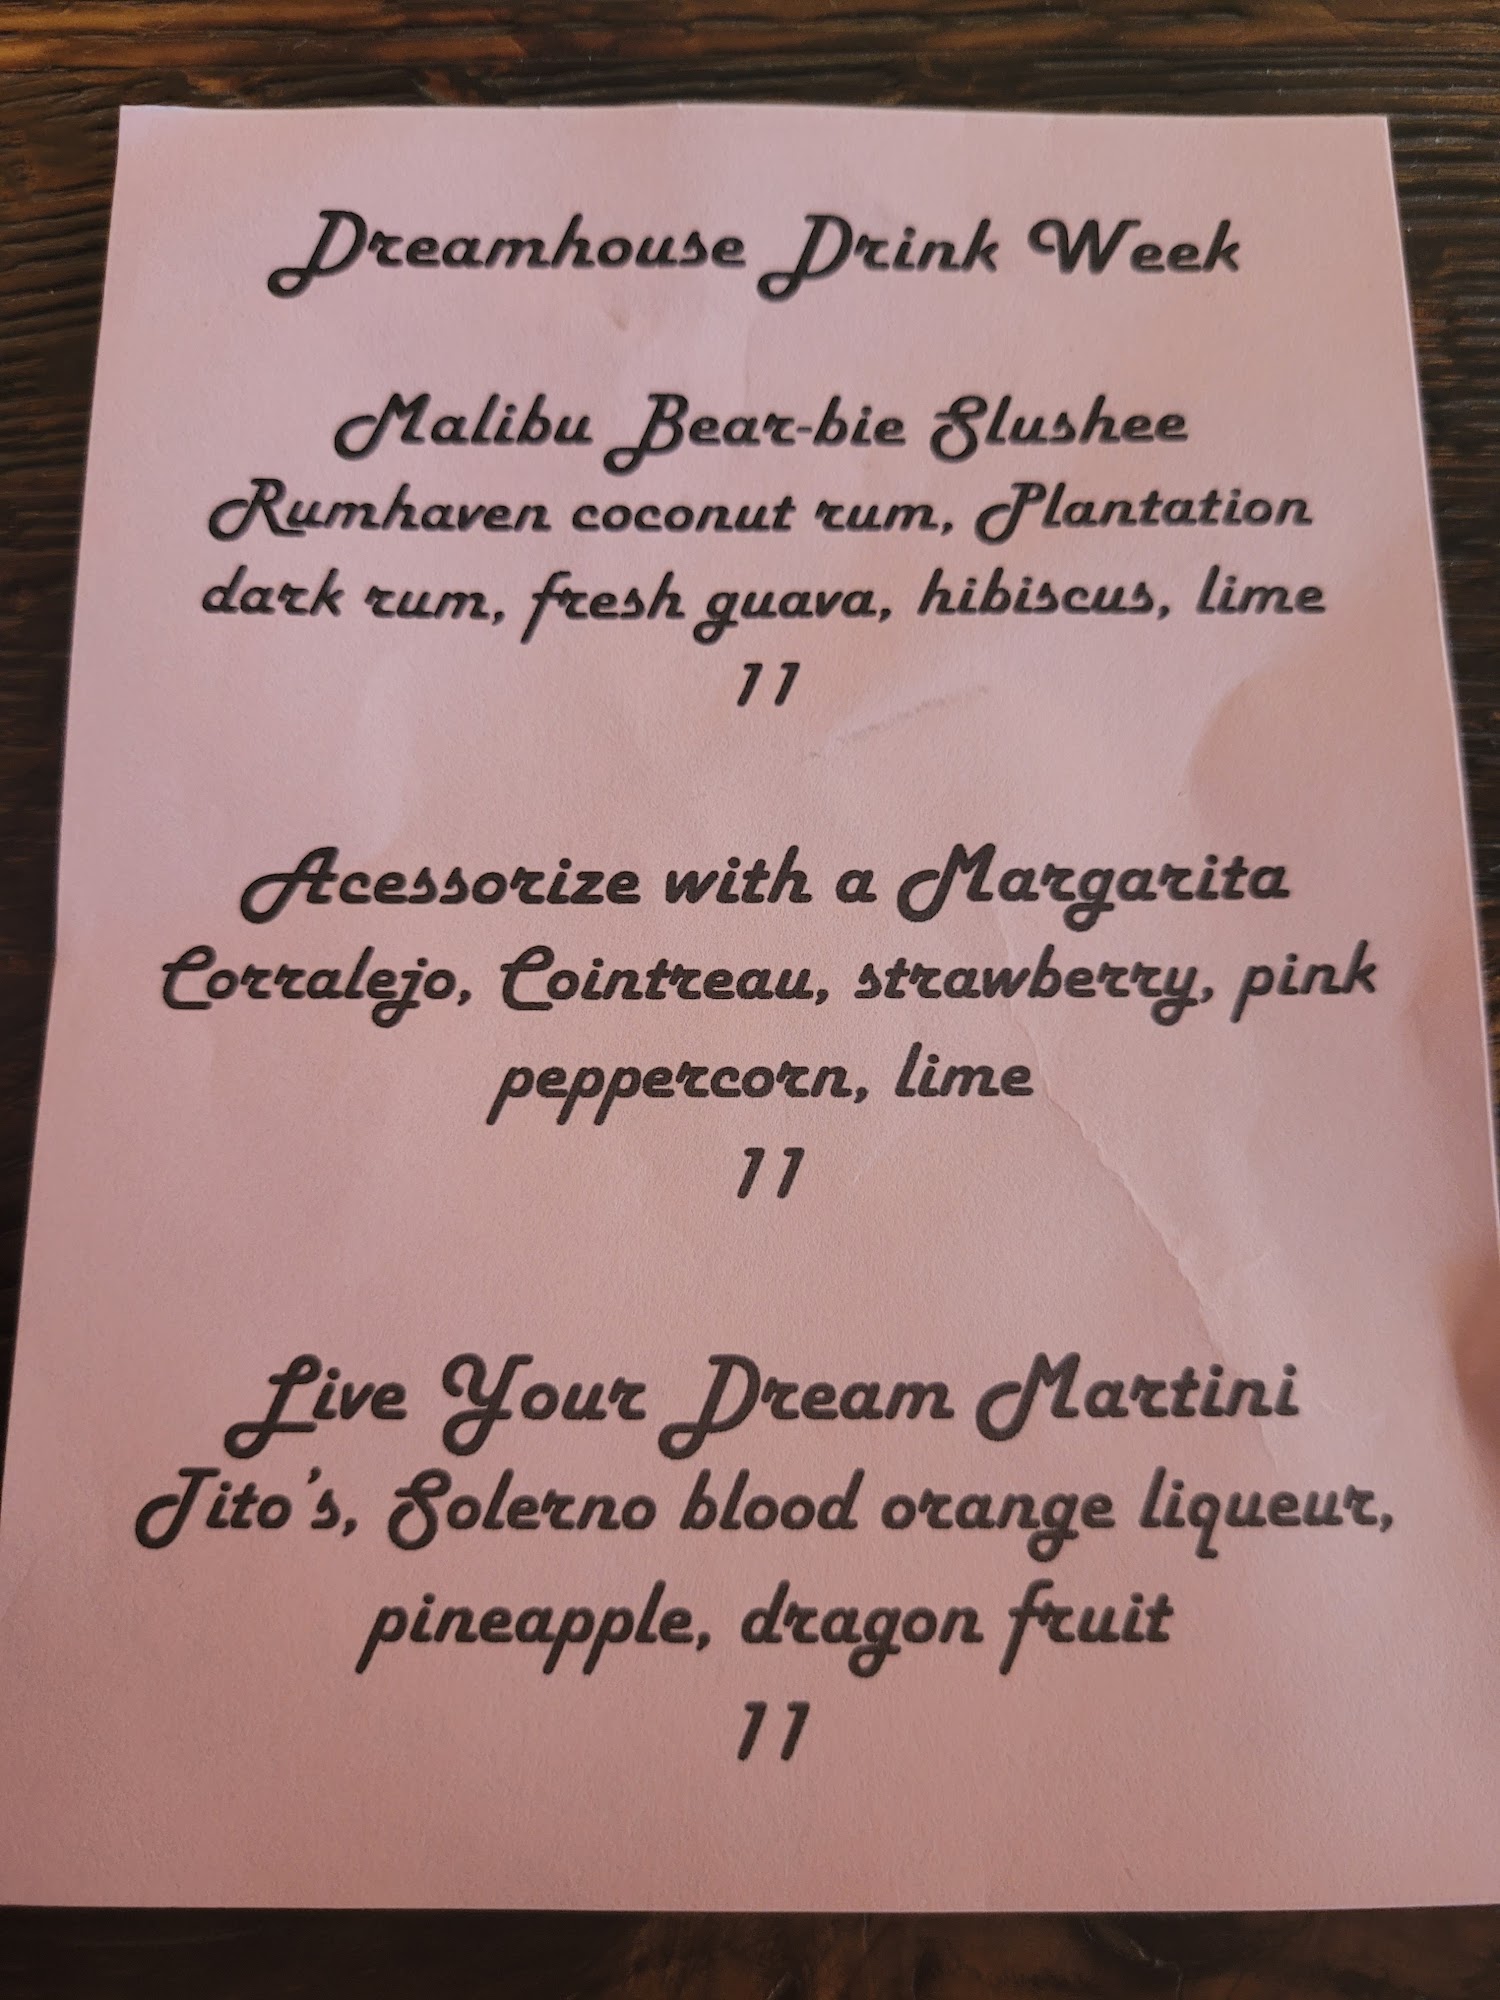 Dreamhouse Drink Week
Malibu Bear-bie Slushee
Rumhaven coconut rum, Plantation
dark rum, fresh guava, hibiscus, lime
11
Acessorize with a Margarita
Corralejo, Cointreau, strawberry, pink
peppercorn, lime
11
Live Your Dream Martini
Tito's, Solerno blood orange liqueur,
pineapple, dragon fruit
11